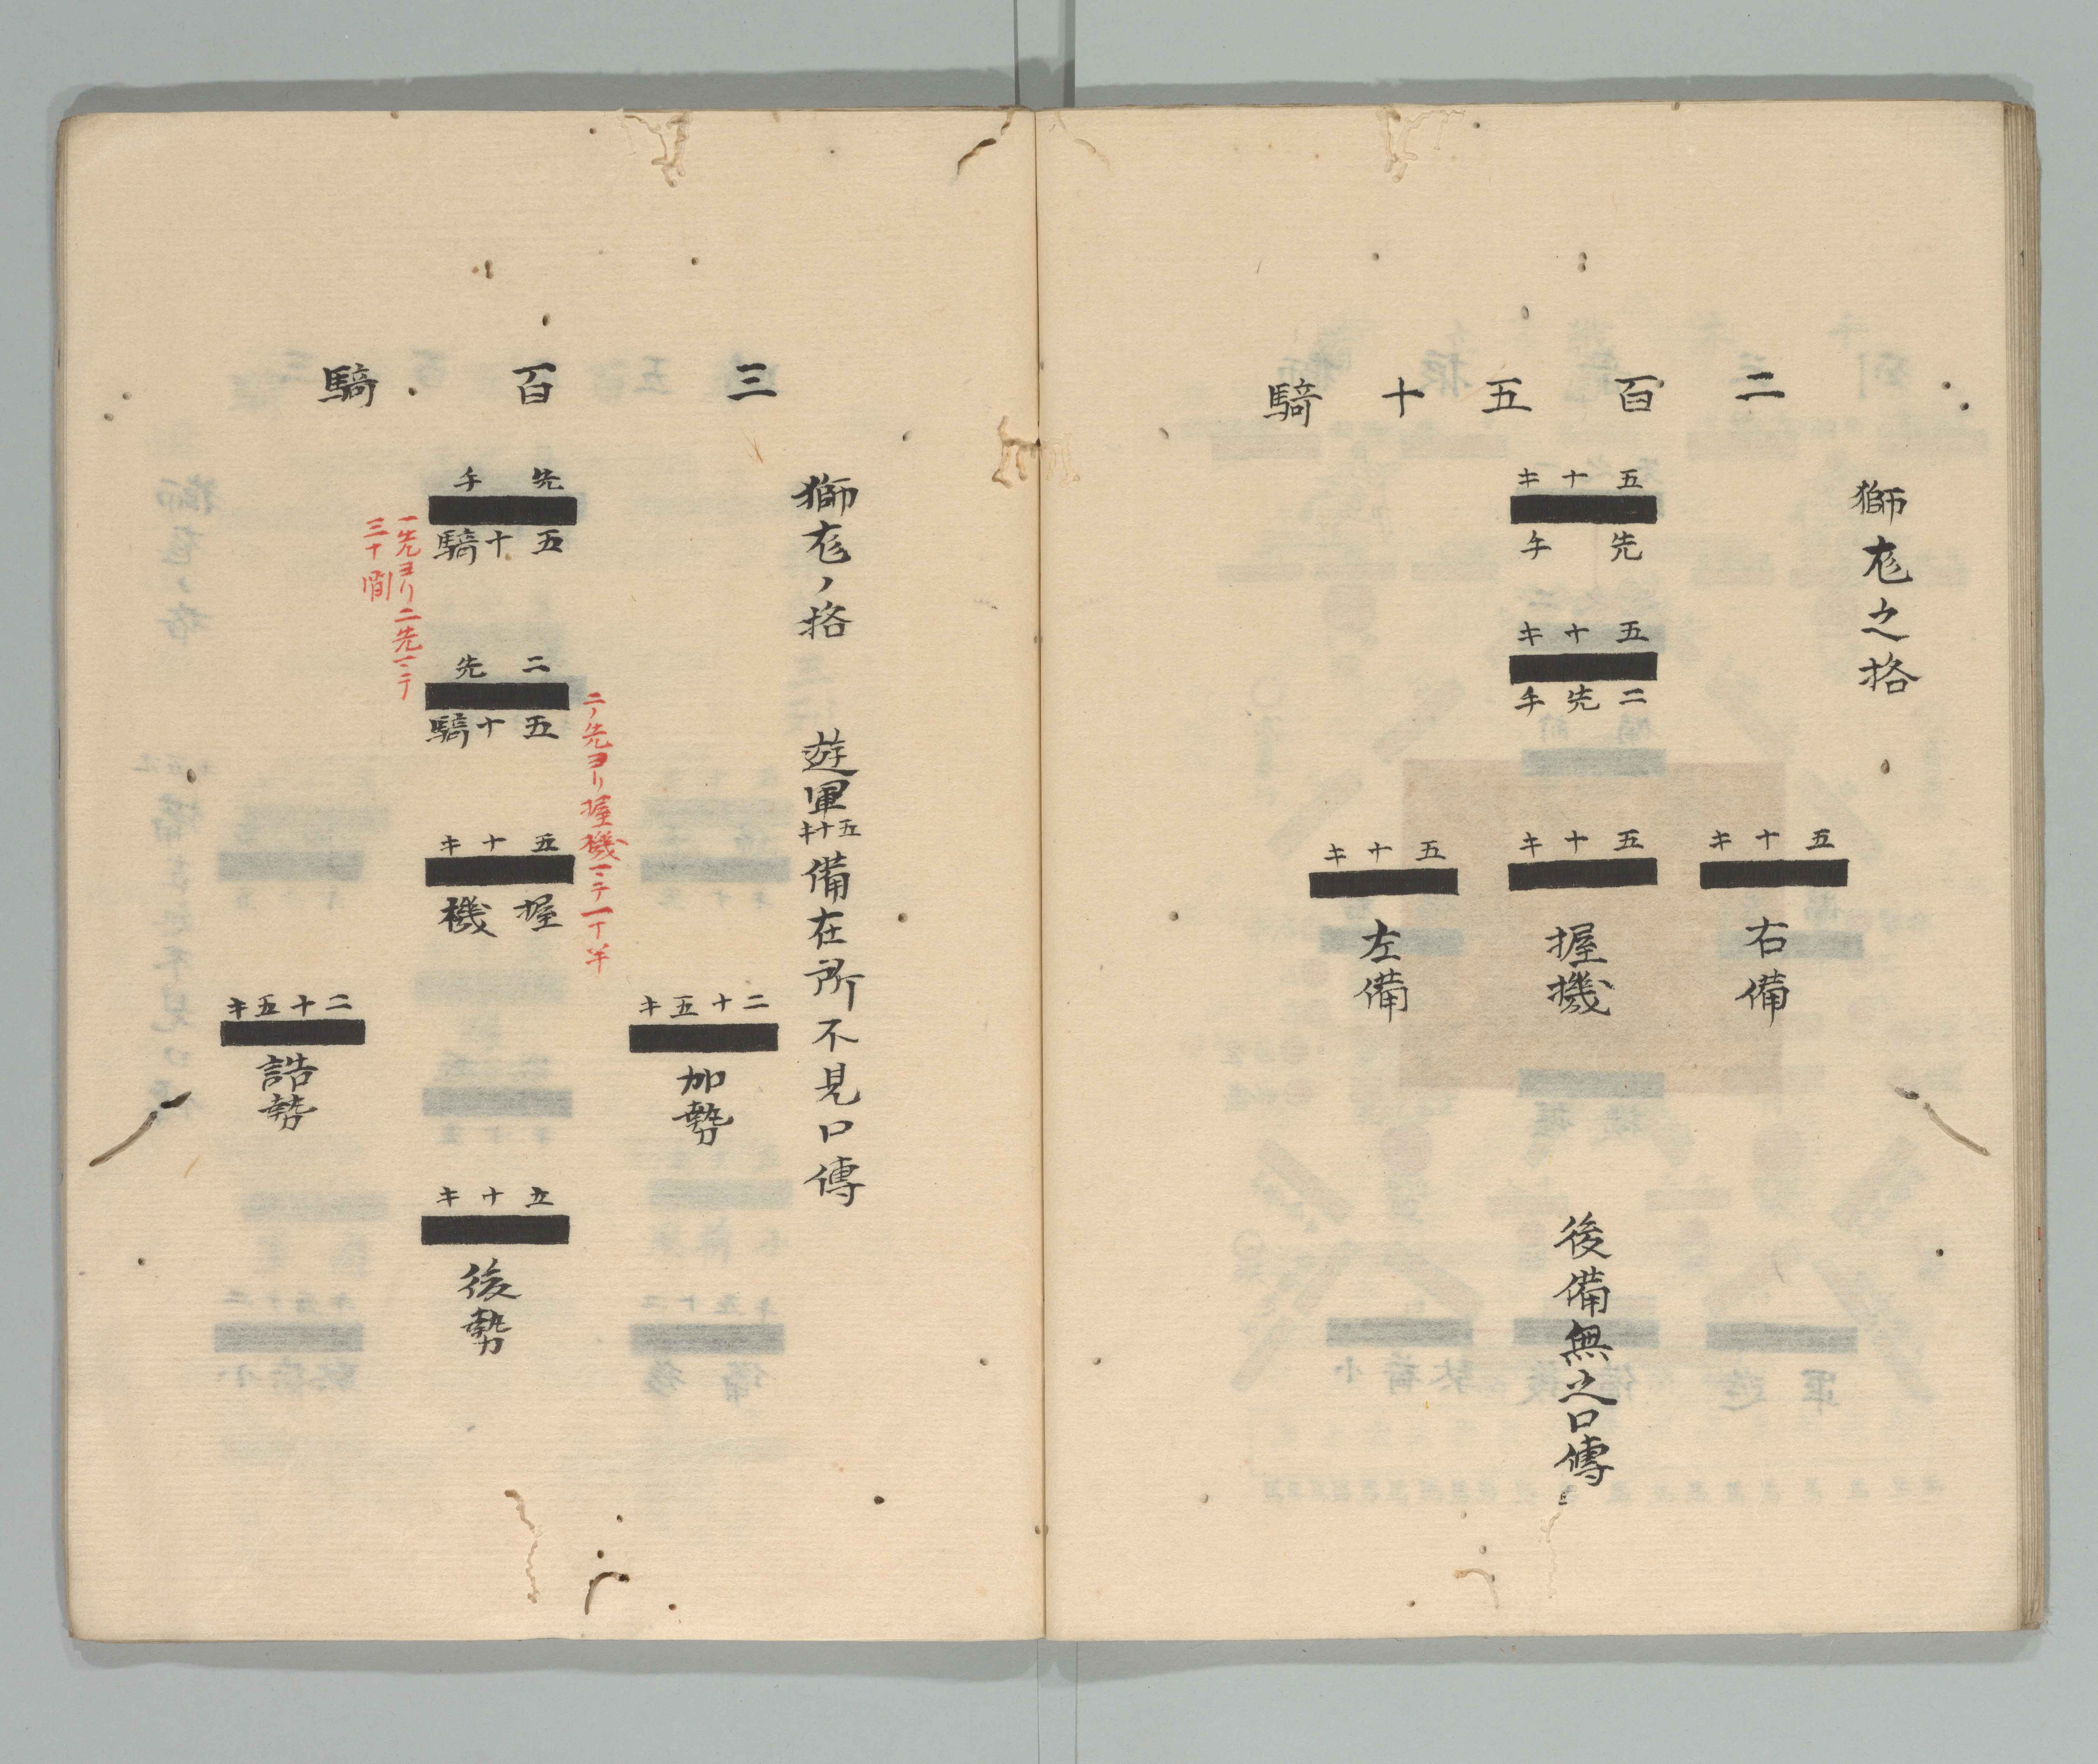 二百五十騎
獅尨之格
五十キ
先手
五十キ
二先手
五十キ
右備
五十キ
握機
五十キ
左備
後備無之口傳
三百騎
獅尨ノ格 遊軍五十キ備在所不見口傳
先手
五十騎
一先ヨリ二先ニテ
三十間
二先
五十騎
二ノ先ヨリ握機ニテ一丁半
五十キ
握機
二十五キ
加勢
二十五キ
誥勢
五十キ
後勢